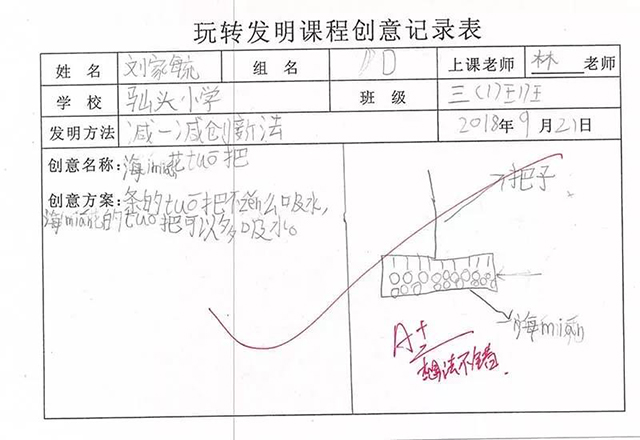 玩转发明课程创意记录表
姓名 刘家毓 组名 D 上课老师 林 老师
学校 汕头小学 班级 三(1)班
发明方法 减一减创新法 2018年9月21日
创意名称: 海mian tuō把
创意方案: 条的tuō把不zěn么吸水,
海mián的tuō把可以多吸水。
把子
海mián
A+
想法不错.